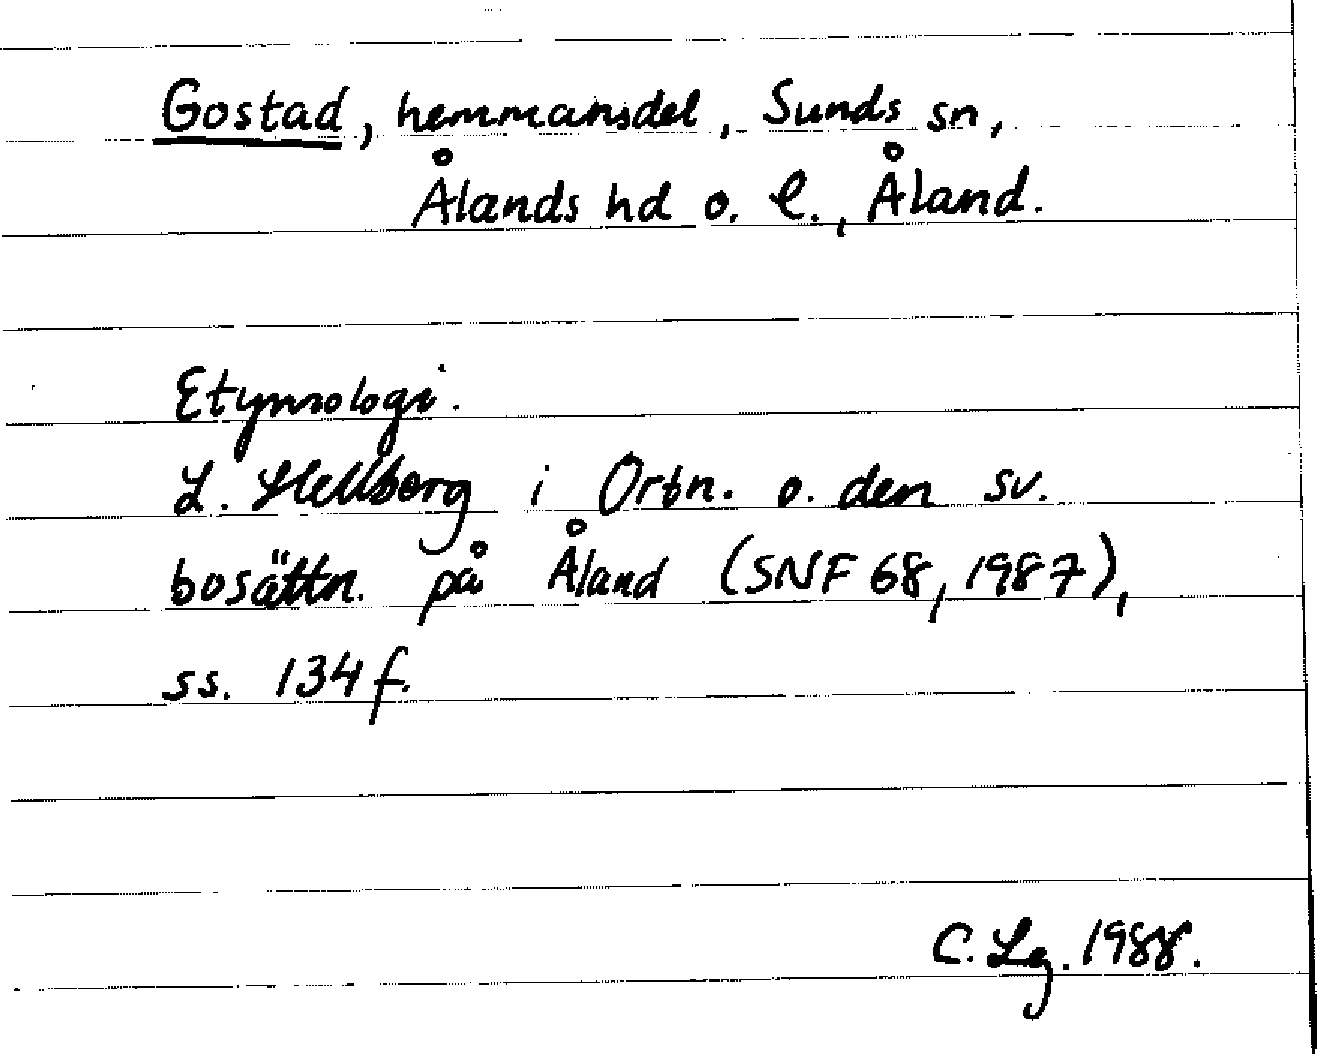 Gostad, hemmansdel, Sunds sn,
Ålands hd o. l., Åland.
Etymologi.
L. Hellberg i Ortn. o. den sv.
bosättn. på Åland (SNF 68, 1987),
ss. 134 f.
C. Lg. 1988.